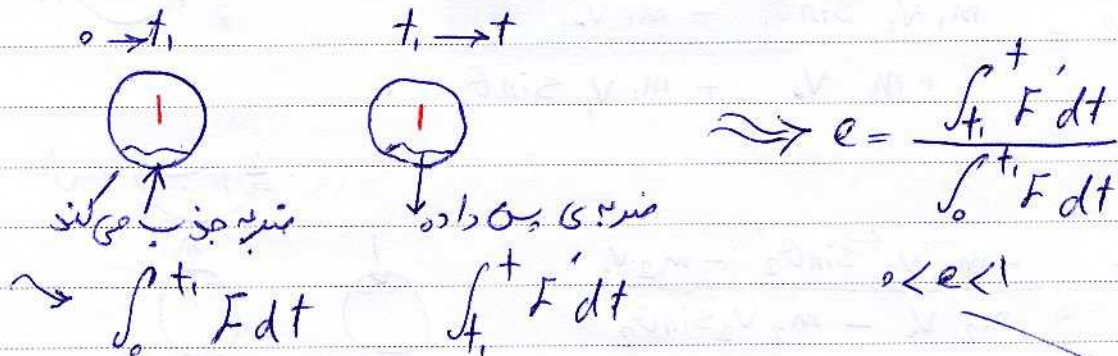 0 → t₁ t₁ → t
1 1
⇝ e = ∫_{t₁}^{t} F′dt / ∫_{0}^{t₁} Fdt
ضربه جذب می‌کند ضربه‌ی پس داده
⇝ ∫_{0}^{t₁} Fdt ∫_{t₁}^{t} F′dt 0<e<1